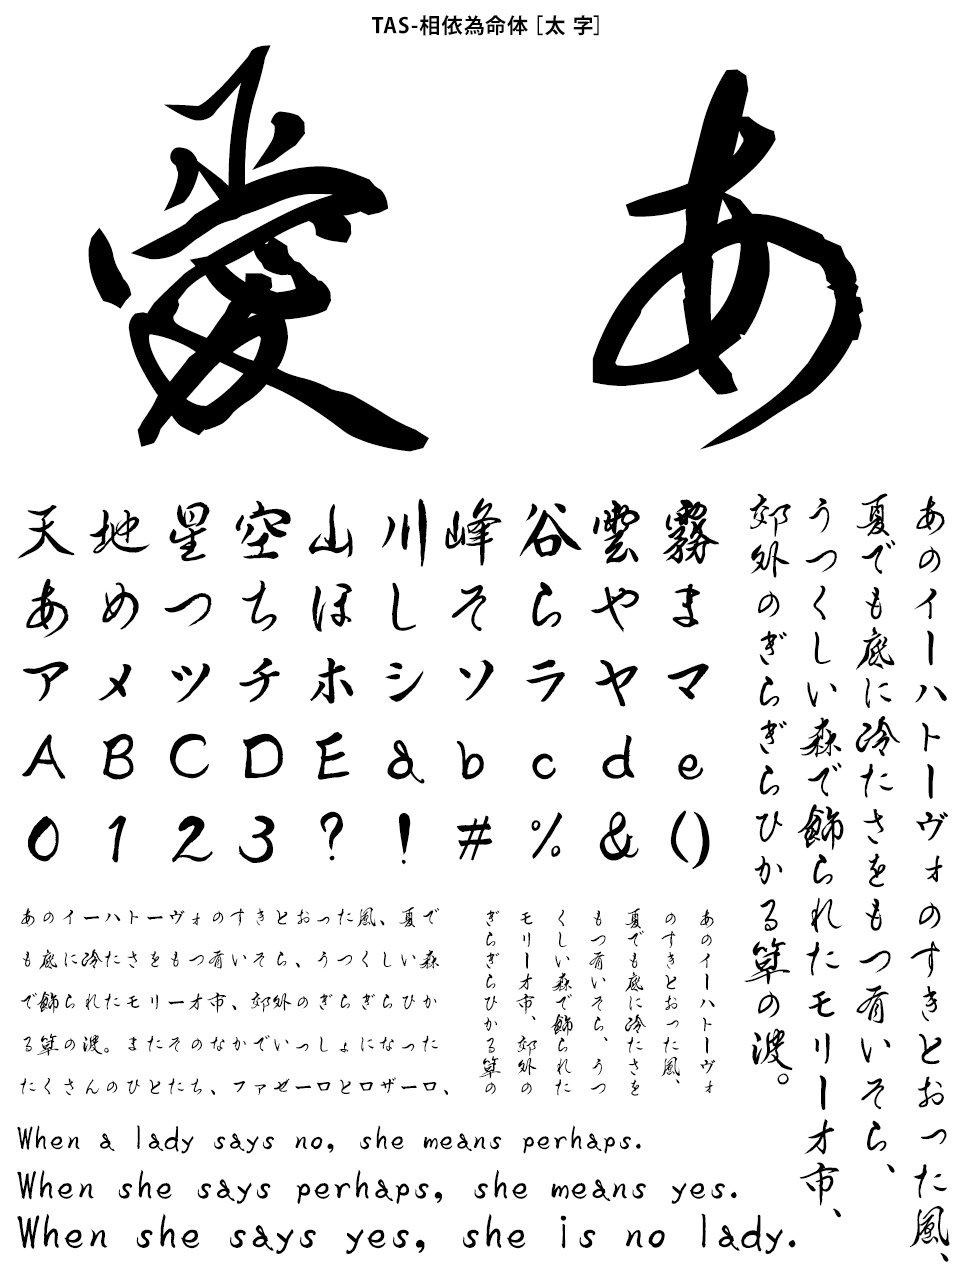 TAS-相依為命体［太 字］
愛 あ
天地星空山川峰谷雲霧
あめつちほしそらやま
アメツチホシソラヤマ
ABCDEabcde
0123?!#%&()
あのイーハトーヴォのすきとおった風、
夏でも底に冷たさをもつ青いそら、
うつくしい森で飾られたモリーオ市、
郊外のぎらぎらひかる草の波。
あのイーハトーヴォのすきとおった風、夏で
も底に冷たさをもつ青いそら、うつくしい森
で飾られたモリーオ市、郊外のぎらぎらひか
る草の波。またそのなかでいっしょになった
たくさんのひとたち、ファゼーロとロザーロ、
あのイーハトーヴォ
のすきとおった風、
夏でも底に冷たさを
もつ青いそら、うつ
くしい森で飾られた
モリーオ市、郊外の
ぎらぎらひかる草の
When a lady says no, she means perhaps.
When she says perhaps, she means yes.
When she says yes, she is no lady.